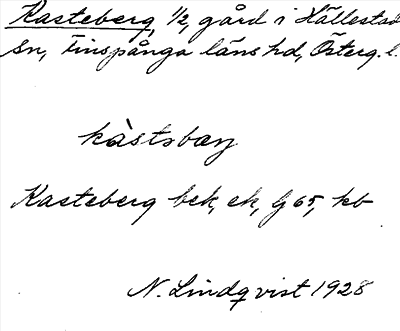 Kasteberg, 1/2, gård i Hällestad
Sn, Finspånga läns hd, Österg. l.
kàstəbærj
Kasteberg bek, ek, G 65, kb
N. Lindqvist 1928